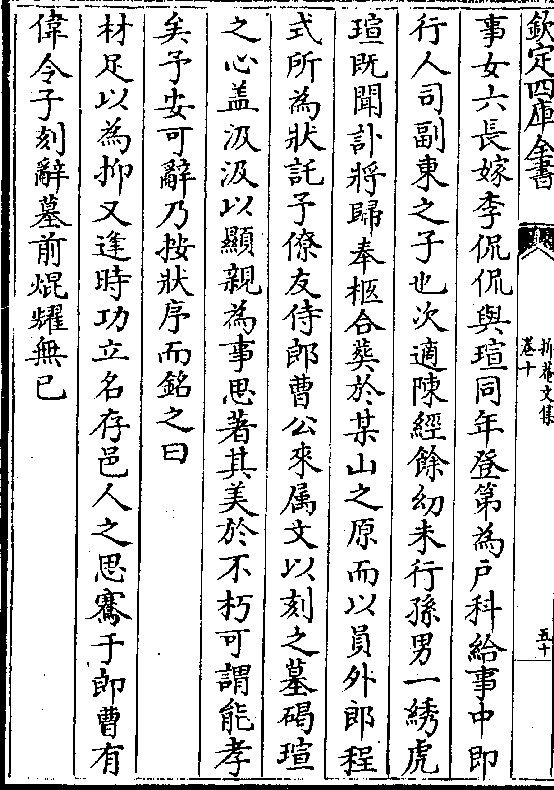 欽定四庫全書
抑菴文集
卷十
五十
事女六長嫁李侃侃與瑄同年登第為户科給事中即
行人司副東之子也次適陳經餘幼未行孫男一綉虎
瑄既聞訃將歸奉柩合葬於某山之原而以員外郎程
式所為狀託予僚友侍郎曹公來属文以刻之墓碣瑄
之心盖汲汲以顯親為事思著其美於不朽可謂能孝
矣予安可辭乃按狀序而銘之曰
材足以為抑又逢時功立名存邑人之思騫于郎曹有
偉令子刻辭墓前焜耀無已